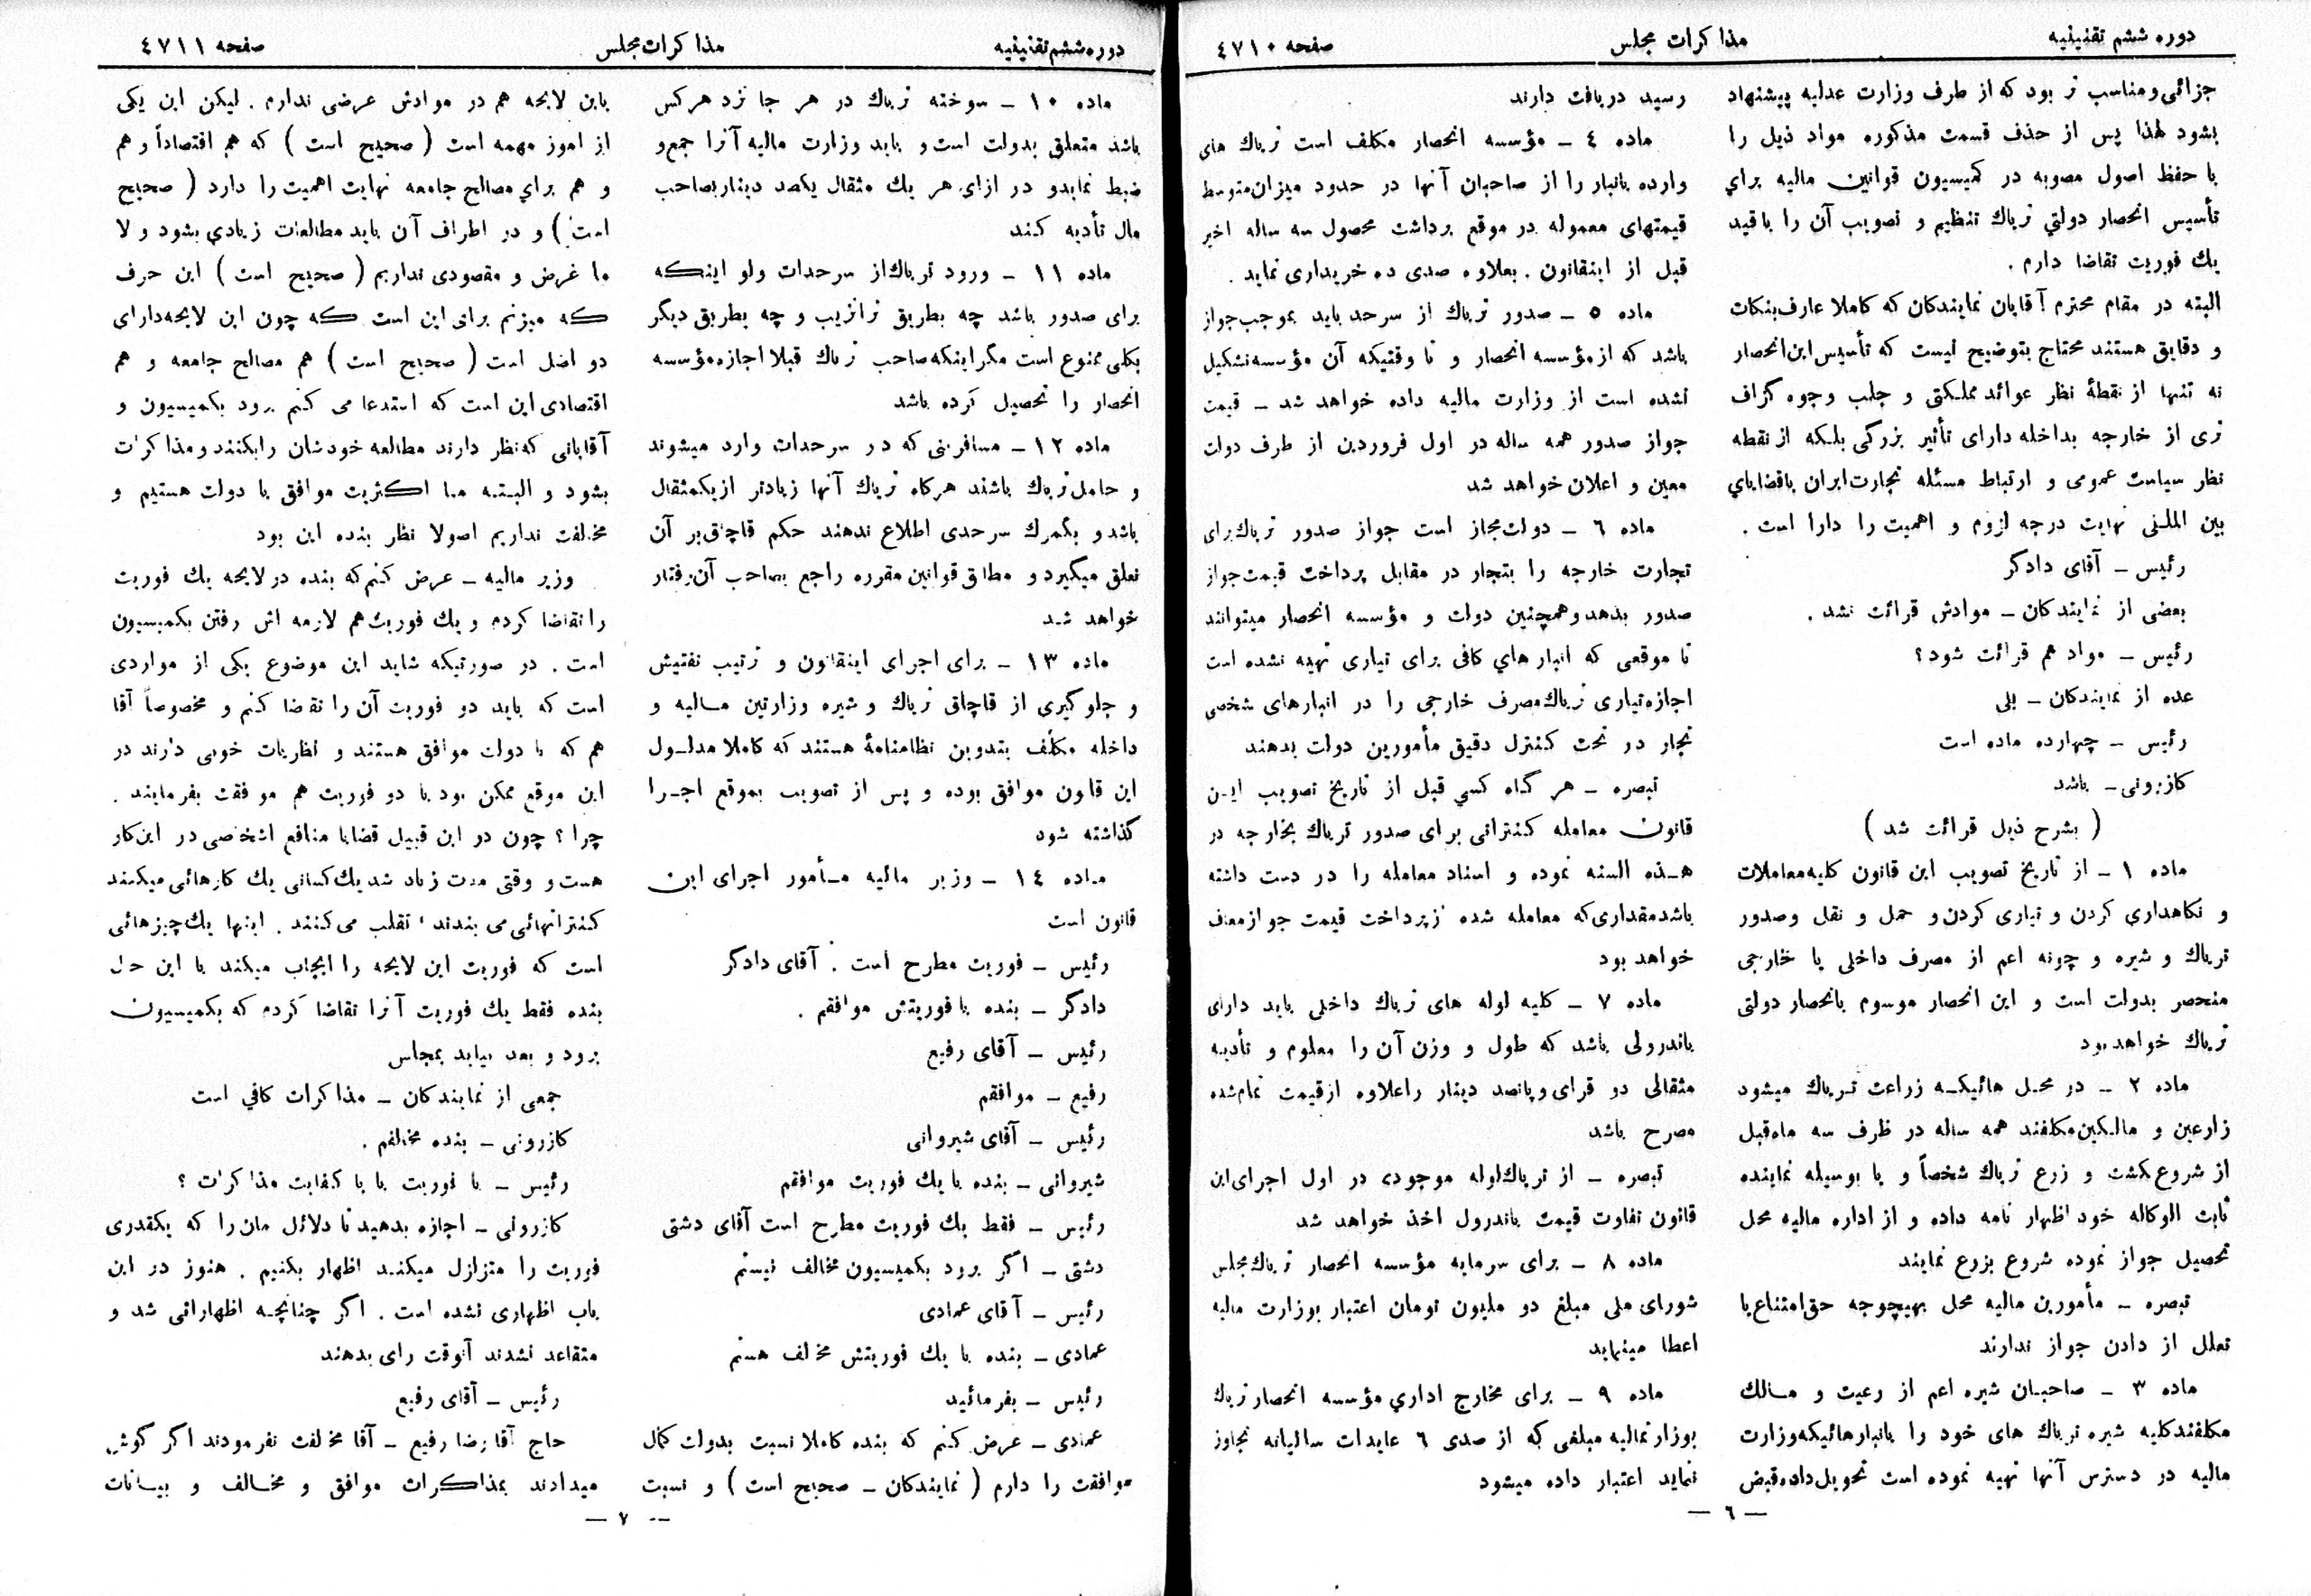 دوره ششم تقنینیه
مذاکرات مجلس
صفحه ٤٧١٠
جزائی و مناسب تر بود که از طرف وزارت عدلیه پیشنهاد
بشود لهذا پس از حذف قسمت مذکوره مواد ذیل را
با حفظ اصول مصوبه در کمیسیون قوانین مالیه برای
تأسیس انحصار دولتی تریاك تنظیم و تصویب آن را با قید
یك فوریت تقاضا دارم .
البته در مقام محترم آقایان نمایندگان که کاملا عارف بنکات
و دقایق هستند محتاج بتوضیح نیست که تأسیس این انحصار
نه تنها از نقطهٔ نظر عوائد مملکتی و جلب وجوه گزاف
تری از خارجه بداخله دارای تأثیر بزرگی بلکه از نقطه
نظر سیاست عمومی و ارتباط مسئله تجارت ایران باقضایای
بین المللی نهایت درجه لزوم و اهمیت را دارا است .
رئیس - آقای دادگر
بعضی از نمایندگان - موادش قرائت نشد .
رئیس - مواد هم قرائت شود ؟
عده از نمایندگان - بلی
رئیس - چهارده ماده است
کازرونی - باشد
( بشرح ذیل قرائت شد )
ماده ١ - از تاریخ تصویب این قانون کلیه معاملات
و نگاهداری کردن و تیاری کردن و حمل و نقل وصدور
تریاك و شیره و چونه اعم از مصرف داخلی یا خارجی
منحصر بدولت است و این انحصار موسوم بانحصار دولتی
تریاك خواهد بود
ماده ٢ - در محل هائیکه زراعت تریاك میشود
زارعین و مالکین مکلفند همه ساله در ظرف سه ماه قبل
از شروع بکشت و زرع تریاك شخصاً و یا بوسیله نماینده
ثابت الوکاله خود اظهار نامه داده و از اداره مالیه محل
تحصیل جواز نموده شروع بزرع نمایند
تبصره - مأمورین مالیه محل بهیچوجه حق امتناع یا
تعلل از دادن جواز ندارند
ماده ٣ - صاحبان شیره اعم از رعیت و مالك
مکلفند کلیه شیره تریاك های خود را بانبارهائیکه وزارت
مالیه در دسترس آنها تهیه نموده است تحویل داده قبض
رسید دریافت دارند
ماده ٤ - مؤسسه انحصار مکلف است تریاك های
وارده بانبار را از صاحبان آنها در حدود میزان متوسط
قیمتهای معموله در موقع برداشت محصول سه ساله اخیر
قبل از اینقانون . بعلاوه صدی ده خریداری نماید .
ماده ٥ - صدور تریاك از سرحد باید بموجب جواز
باشد که از مؤسسه انحصار و تا وقتیکه آن مؤسسه تشکیل
نشده است از وزارت مالیه داده خواهد شد - قیمت
جواز صدور همه ساله در اول فروردین از طرف دولت
معین و اعلان خواهد شد
ماده ٦ - دولت مجاز است جواز صدور تریاك برای
تجارت خارجه را بتجار در مقابل پرداخت قیمت جواز
صدور بدهد و همچنین دولت و مؤسسه انحصار میتوانند
تا موقعی که انبار های کافی برای تیاری تهیه نشده است
اجازه تیاری تریاك مصرف خارجی را در انبارهای شخصی
تجار در تحت کنترل دقیق مأمورین دولت بدهند
تبصره - هر گاه کسی قبل از تاریخ تصویب این
قانون معامله کنتراتی برای صدور تریاك بخارجه در
هذه السنه نموده و اسناد معامله را در دست داشته
باشد مقداری که معامله شده از پرداخت قیمت جواز معاف
خواهد بود
ماده ٧ - کلیه لوله های تریاك داخلی باید دارای
باندرولی باشد که طول و وزن آن را معلوم و تأدیه
مثقالی دو قرای و پانصد دینار را علاوه از قیمت تمام شده
مصرح باشد
تبصره - از تریاك لوله موجودی در اول اجرای این
قانون تفاوت قیمت باندرول اخذ خواهد شد
ماده ٨ - برای سرمایه مؤسسه انحصار تریاك مجلس
شورای ملی مبلغ دو ملیون تومان اعتبار بوزارت مالیه
اعطا مینماید
ماده ٩ - برای مخارج اداری مؤسسه انحصار تریاك
بوزارتمالیه مبلغی که از صدی ٦ عایدات سالیانه تجاوز
ننماید اعتبار داده میشود
— ٦ —
دوره ششم تقنینیه
مذاکرات مجلس
صفحه ٤٧١١
ماده ١٠ - سوخته تریاك در هر جا نزد هر کس
باشد متعلق بدولت است و باید وزارت مالیه آنرا جمع و
ضبط نماید و در ازای هر یك مثقال یکصد دینار بصاحب
مال تأدیه کند
ماده ١١ - ورود تریاك از سرحدات ولو اینکه
برای صدور باشد چه بطریق ترانزیت و چه بطریق دیگر
بکلی ممنوع است مگر اینکه صاحب تریاك قبلا اجازه مؤسسه
انحصار را تحصیل کرده باشد
ماده ١٢ - مسافرینی که در سرحدات وارد میشوند
و حامل تریاك باشند هرگاه تریاك آنها زیادتر از یکمثقال
باشد و بگمرك سرحدی اطلاع ندهند حکم قاچاق بر آن
تعلق میگیرد و مطابق قوانین مقرره راجع بصاحب آن رفتار
خواهد شد
ماده ١٣ - برای اجرای اینقانون و ترتیب تفتیش
و جلوگیری از قاچاق تریاك و شیره وزارتین مالیه و
داخله مکلف بتدوین نظامنامهٔ هستند که کاملا مدلول
این قانون موافق بوده و پس از تصویب بموقع اجرا
گذاشته شود
ماده ١٤ - وزیر مالیه مأمور اجرای این
قانون است
رئیس - فوریت مطرح است . آقای دادگر
دادگر - بنده با فوریتش موافقم .
رئیس - آقای رفیع
رفیع - موافقم
رئیس - آقای شیروانی
شیروانی - بنده با یك فوریت موافقم
رئیس - فقط یك فوریت مطرح است آقای دشتی
دشتی - اگر برود بکمیسیون مخالف نیستم
رئیس - آقای عمادی
عمادی - بنده با یك فوریتش مخالف هستم
رئیس - بفرمائید
عمادی - عرض کنم که بنده کاملا نسبت بدولت کمال
موافقت را دارم ( نمایندگان - صحیح است ) و نسبت
باین لایحه هم در موادش عرضی ندارم . لیکن این یکی
از امور مهمه است ( صحیح است ) که هم اقتصاداً و هم
و هم برای مصالح جامعه نهایت اهمیت را دارد ( صحیح
است ) و در اطراف آن باید مطالعات زیادی بشود و لا
ما غرض و مقصودی نداریم ( صحیح است ) این حرف
که میزنم برای این است که چون این لایحه دارای
دو اصل است ( صحیح است ) هم مصالح جامعه و هم
اقتصادی این است که استدعا می کنم برود بکمیسیون و
آقایانی که نظر دارند مطالعه خودشان را بکنند و مذاکرات
بشود و البته ما اکثریت موافق با دولت هستیم و
مخالفت نداریم اصولا نظر بنده این بود
وزیر مالیه - عرض کنم که بنده در لایحه یك فوریت
را تقاضا کردم و یك فوریت هم لازمه اش رفتن بکمیسیون
است . در صورتیکه شاید این موضوع یکی از مواردی
است که باید دو فوریت آن را تقاضا کنم و مخصوصاً آقا
هم که با دولت موافق هستند و نظریات خوبی دارند در
این موقع ممکن بود با دو فوریت هم موافقت بفرمایند .
چرا ؟ چون در این قبیل قضایا منافع اشخاصی در این کار
هست و وقتی مدت زیاد شد یك کسانی یك کارهائی میکنند
کنتراتهائی می بندند ، تقلب می کنند . اینها یك چیزهائی
است که فوریت این لایحه را ایجاب میکند با این حال
بنده فقط یك فوریت آنرا تقاضا کردم که بکمیسیون
برود و بعد بیاید بمجلس
جمعی از نمایندگان - مذاکرات کافی است
کازرونی - بنده مخالفم .
رئیس - با فوریت یا با کفایت مذاکرات ؟
کازرونی - اجازه بدهید تا دلائل مان را که یکقدری
فوریت را متزلزل میکند اظهار بکنیم . هنوز در این
باب اظهاری نشده است . اگر چنانچه اظهاراتی شد و
متقاعد نشدند آنوقت رای بدهند
رئیس - آقای رفیع
حاج آقا رضا رفیع - آقا مخالفت نفرمودند اگر گوش
میدادند بمذاکرات موافق و مخالف و بیانات
— ٧ —